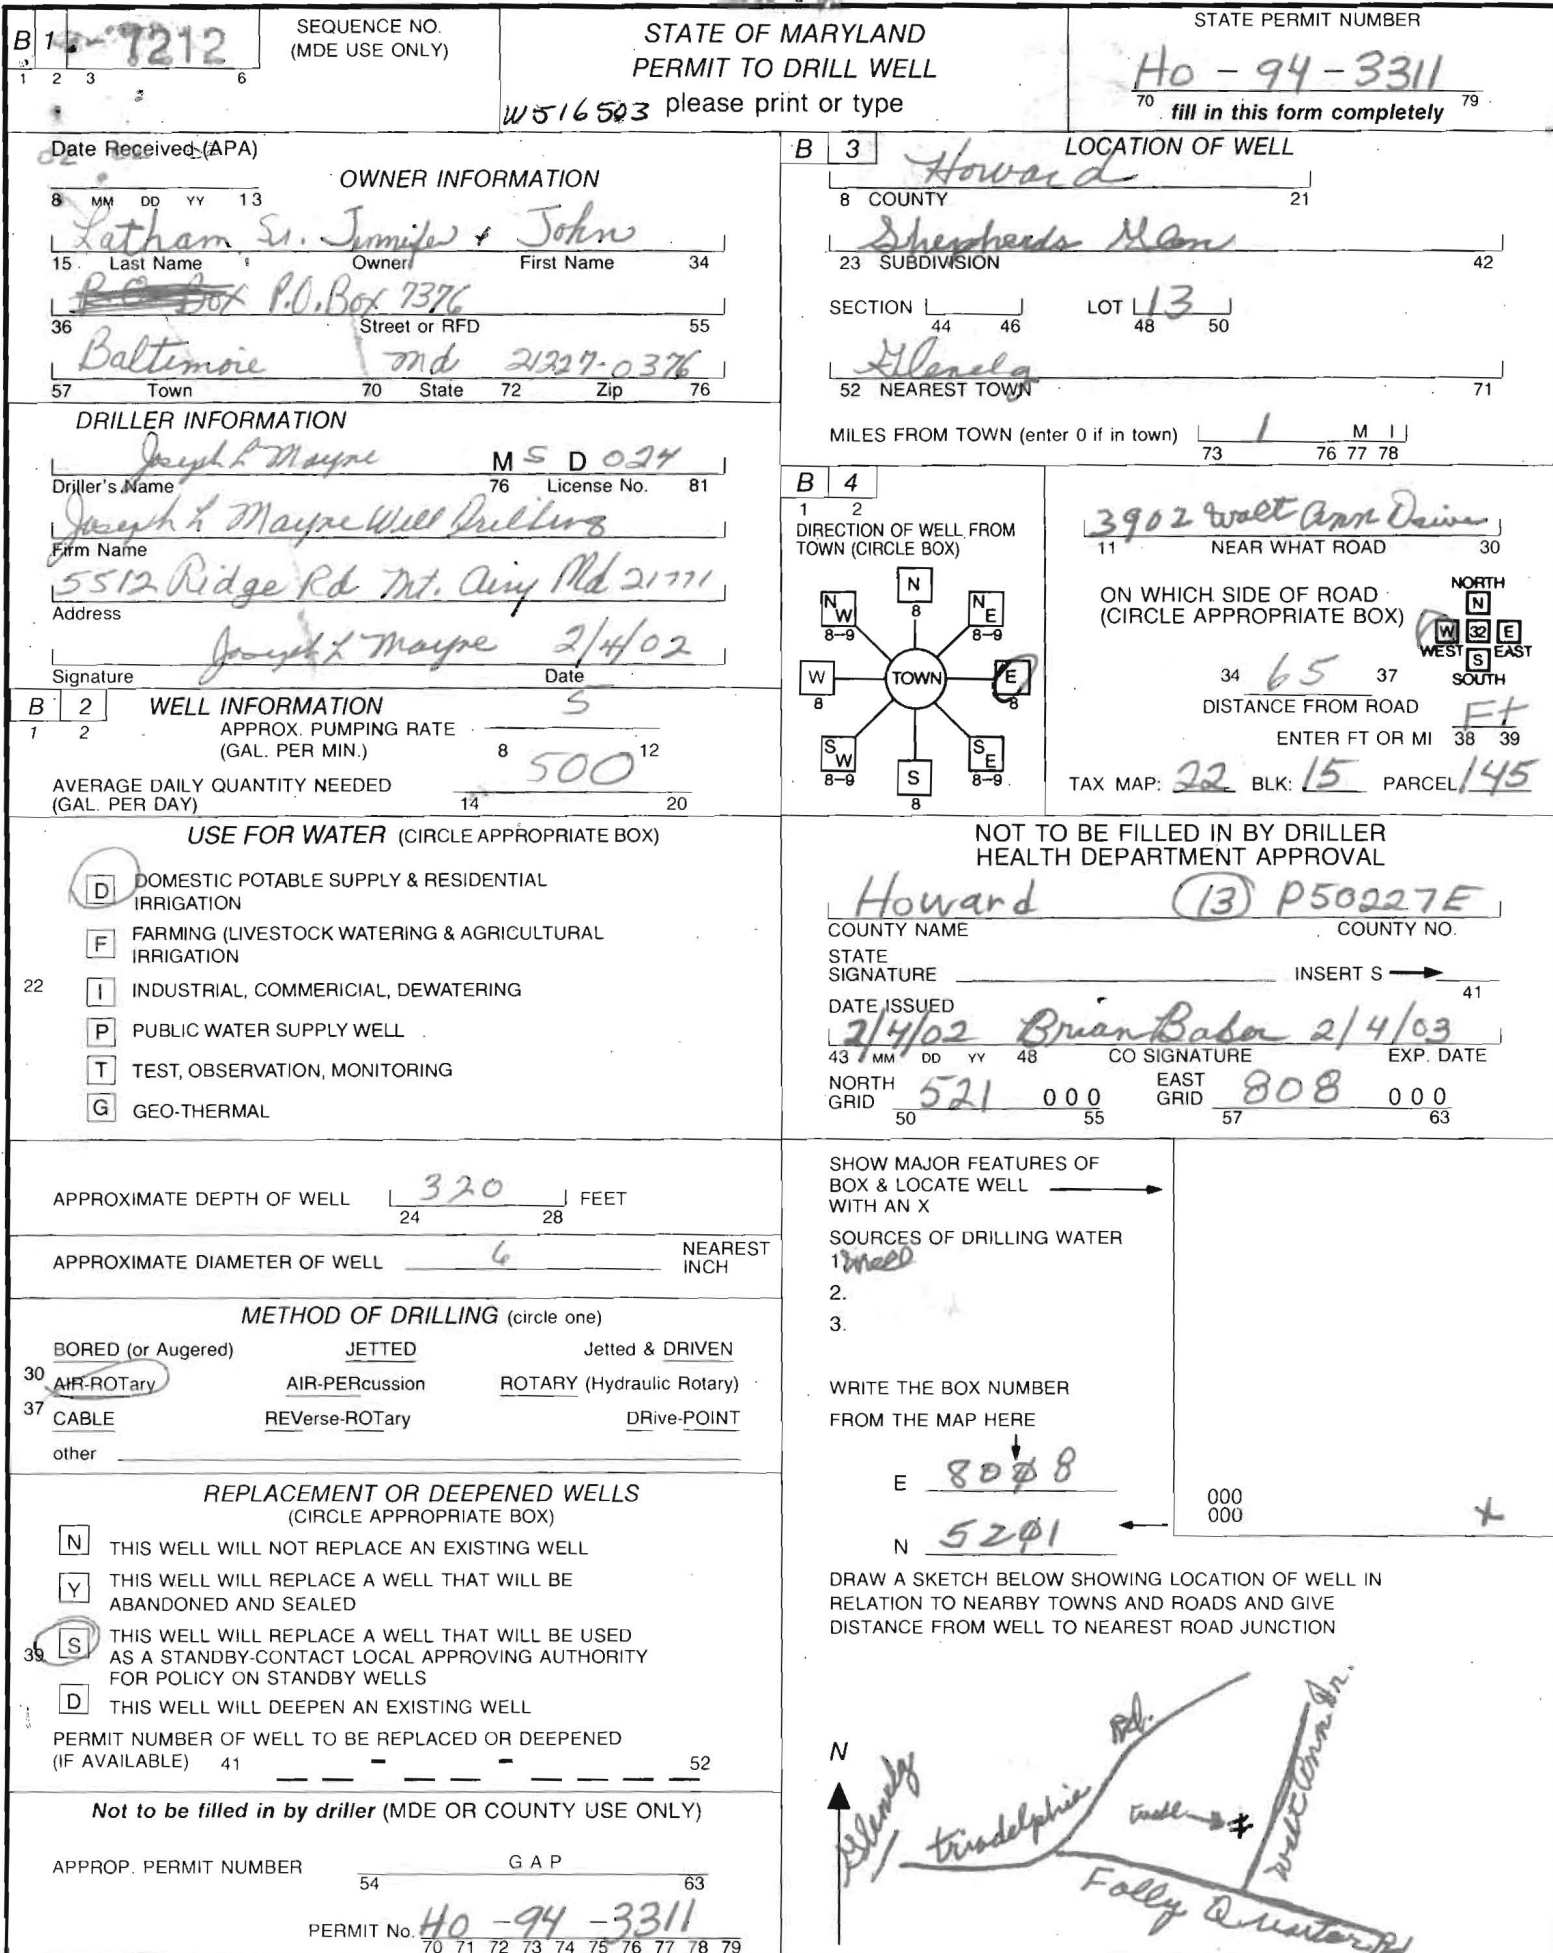 B 1 7212
1 2 3 6
SEQUENCE NO.
(MDE USE ONLY)
STATE OF MARYLAND
PERMIT TO DRILL WELL
W516503 please print or type
STATE PERMIT NUMBER
HO - 94 - 3311
70 79
fill in this form completely
Date Received (APA)
8 MM DD YY 13
OWNER INFORMATION
Latham Sr. Jennifer & John
15 Last Name Owner First Name 34
P.O. Box P.O. Box 7376
36 Street or RFD 55
Baltimore Md 21227-0376
57 Town 70 State 72 Zip 76
DRILLER INFORMATION
Joseph L Mayne M S D 024
Driller's Name 76 License No. 81
Joseph L Mayne Well Drilling
Firm Name
5512 Ridge Rd Mt. Airy Md 21771
Address
Joseph L Mayne 2/4/02
Signature Date
B 2 WELL INFORMATION
1 2
APPROX. PUMPING RATE 5
(GAL. PER MIN.) 8 12
AVERAGE DAILY QUANTITY NEEDED 500
(GAL. PER DAY) 14 20
USE FOR WATER (CIRCLE APPROPRIATE BOX)
D DOMESTIC POTABLE SUPPLY & RESIDENTIAL
IRRIGATION
F FARMING (LIVESTOCK WATERING & AGRICULTURAL
IRRIGATION
22 I INDUSTRIAL, COMMERICIAL, DEWATERING
P PUBLIC WATER SUPPLY WELL
T TEST, OBSERVATION, MONITORING
G GEO-THERMAL
APPROXIMATE DEPTH OF WELL 320 FEET
24 28
APPROXIMATE DIAMETER OF WELL 6 NEAREST
INCH
METHOD OF DRILLING (circle one)
BORED (or Augered) JETTED Jetted & DRIVEN
30 AIR-ROTary AIR-PERcussion ROTARY (Hydraulic Rotary)
37 CABLE REVerse-ROTary DRive-POINT
other
REPLACEMENT OR DEEPENED WELLS
(CIRCLE APPROPRIATE BOX)
N THIS WELL WILL NOT REPLACE AN EXISTING WELL
Y THIS WELL WILL REPLACE A WELL THAT WILL BE
ABANDONED AND SEALED
39 S THIS WELL WILL REPLACE A WELL THAT WILL BE USED
AS A STANDBY-CONTACT LOCAL APPROVING AUTHORITY
FOR POLICY ON STANDBY WELLS
D THIS WELL WILL DEEPEN AN EXISTING WELL
PERMIT NUMBER OF WELL TO BE REPLACED OR DEEPENED
(IF AVAILABLE) 41 - - 52
Not to be filled in by driller (MDE OR COUNTY USE ONLY)
APPROP. PERMIT NUMBER G A P
54 63
PERMIT No. HO - 94 - 3311
70 71 72 73 74 75 76 77 78 79
B 3 LOCATION OF WELL
Howard
8 COUNTY 21
Shepherds Glen
23 SUBDIVISION 42
SECTION LOT 13
44 46 48 50
Glenelg
52 NEAREST TOWN 71
MILES FROM TOWN (enter 0 if in town) 1 M I
73 76 77 78
B 4
1 2
DIRECTION OF WELL FROM
TOWN (CIRCLE BOX)
N
8
NW NE
8-9 8-9
W TOWN E
8 8
SW SE
8-9 8-9
S
8
3902 Walt Ann Drive
11 NEAR WHAT ROAD 30
ON WHICH SIDE OF ROAD
(CIRCLE APPROPRIATE BOX)
NORTH
N
W 32 E
WEST S EAST
SOUTH
34 65 37
DISTANCE FROM ROAD Ft
ENTER FT OR MI 38 39
TAX MAP: 22 BLK: 15 PARCEL 145
NOT TO BE FILLED IN BY DRILLER
HEALTH DEPARTMENT APPROVAL
Howard (13) P50227E
COUNTY NAME COUNTY NO.
STATE
SIGNATURE INSERT S
41
DATE ISSUED
2/4/02 Brian Baber 2/4/03
43 MM DD YY 48 CO SIGNATURE EXP. DATE
NORTH
GRID 521 000 EAST
GRID 808 000
50 55 57 63
SHOW MAJOR FEATURES OF
BOX & LOCATE WELL
WITH AN X
SOURCES OF DRILLING WATER
1. well
2.
3.
WRITE THE BOX NUMBER
FROM THE MAP HERE
E 8008
N 5201
000
000
X
DRAW A SKETCH BELOW SHOWING LOCATION OF WELL IN
RELATION TO NEARBY TOWNS AND ROADS AND GIVE
DISTANCE FROM WELL TO NEAREST ROAD JUNCTION
N
Glenelg
triadelphia Rd.
Walt Ann Dr.
Folly Quarter Rd